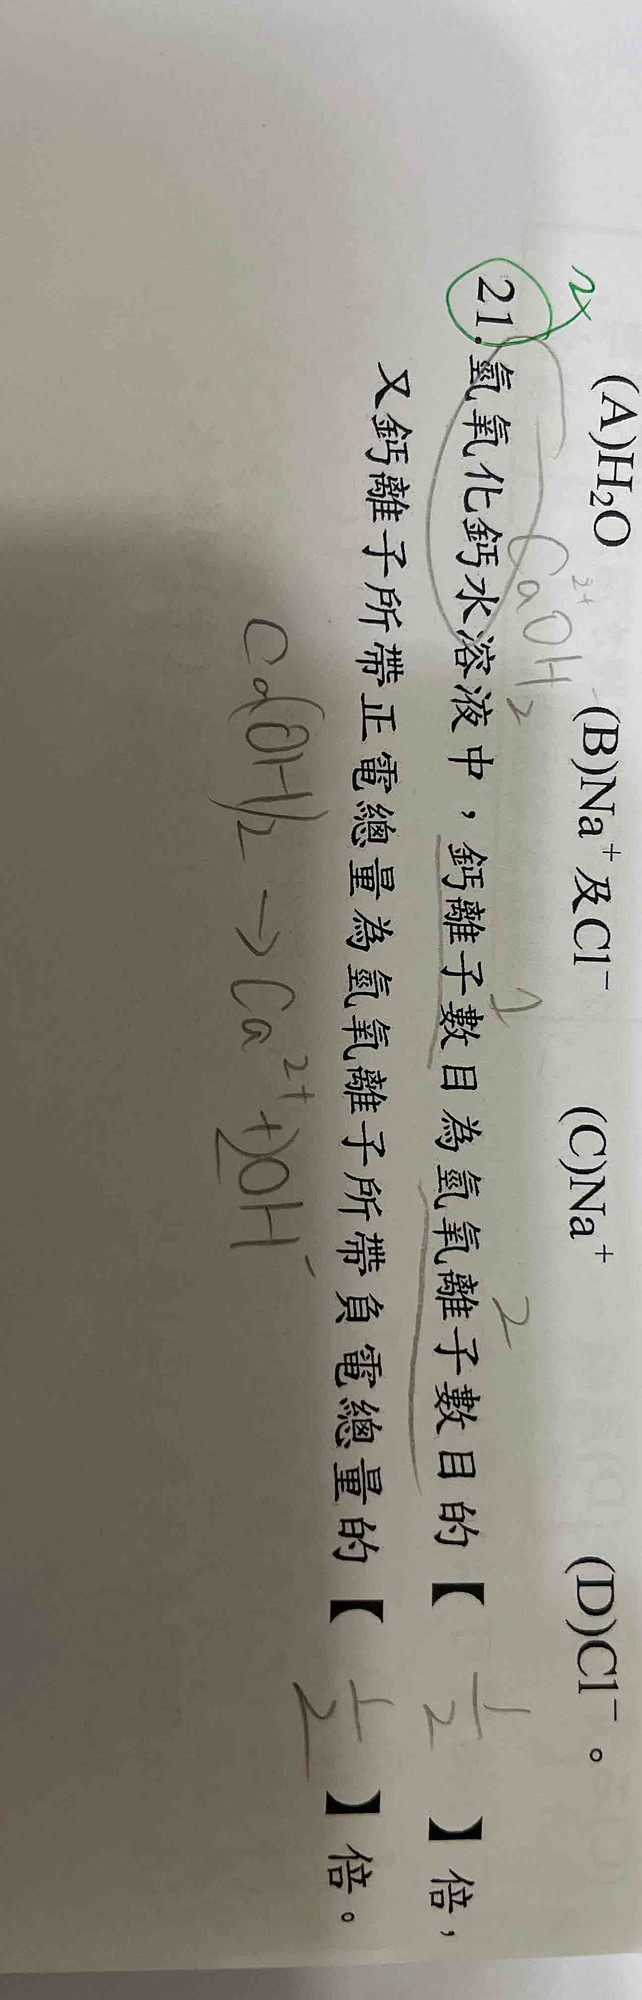 (A)H₂O (B)Na⁺及Cl⁻ (C)Na⁺ (D)Cl⁻。
2+
CaOH₂ 1 2
21.氫氧化鈣水溶液中，鈣離子數目為氫氧離子數目的【 1/2 】倍，
又鈣離子所帶正電總量為氫氧離子所帶負電總量的【 1/2 】倍。
Ca(OH)₂ → Ca²⁺ + 2OH⁻